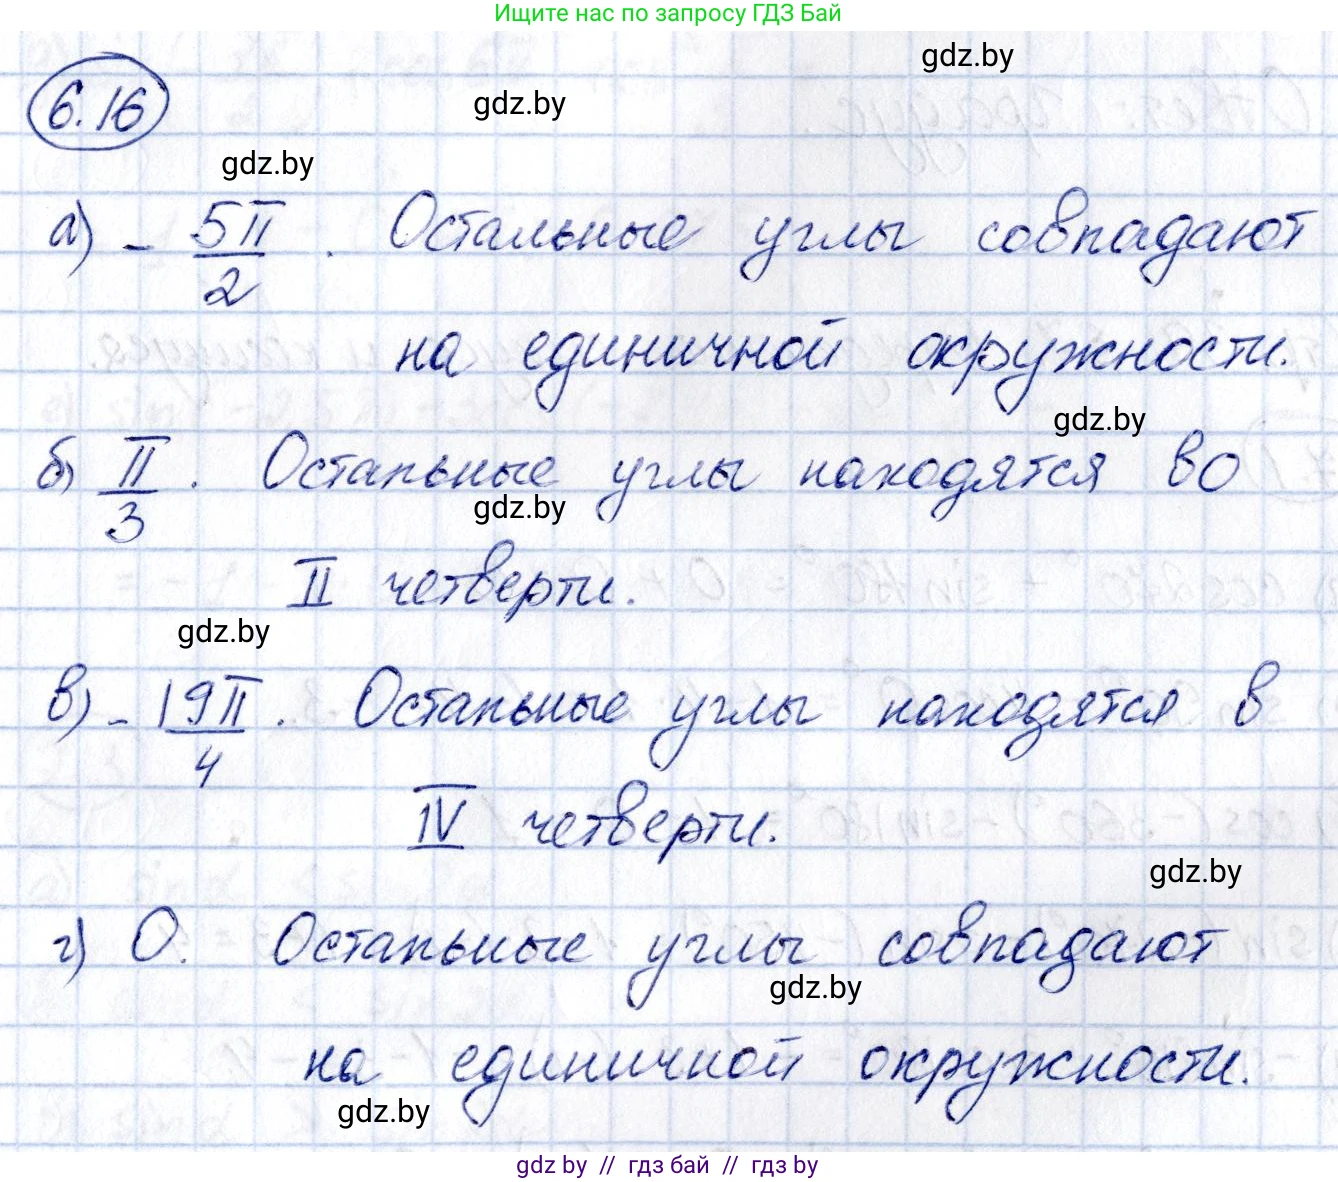 Ищите нас по запросу ГДЗ Бай
gdz.by
gdz.by
6.16
gdz.by
а) - 5π/2 . Остальные углы совпадают
на единичной окружности.
gdz.by
б) π/3 . Остальные углы находятся во
gdz.by
II четверти.
gdz.by
в) - 19π/4 . Остальные углы находятся в
IV четверти.
gdz.by
г) 0. Остальные углы совпадают
gdz.by
на единичной окружности.
gdz.by
gdz by // гдз бай // гдз by